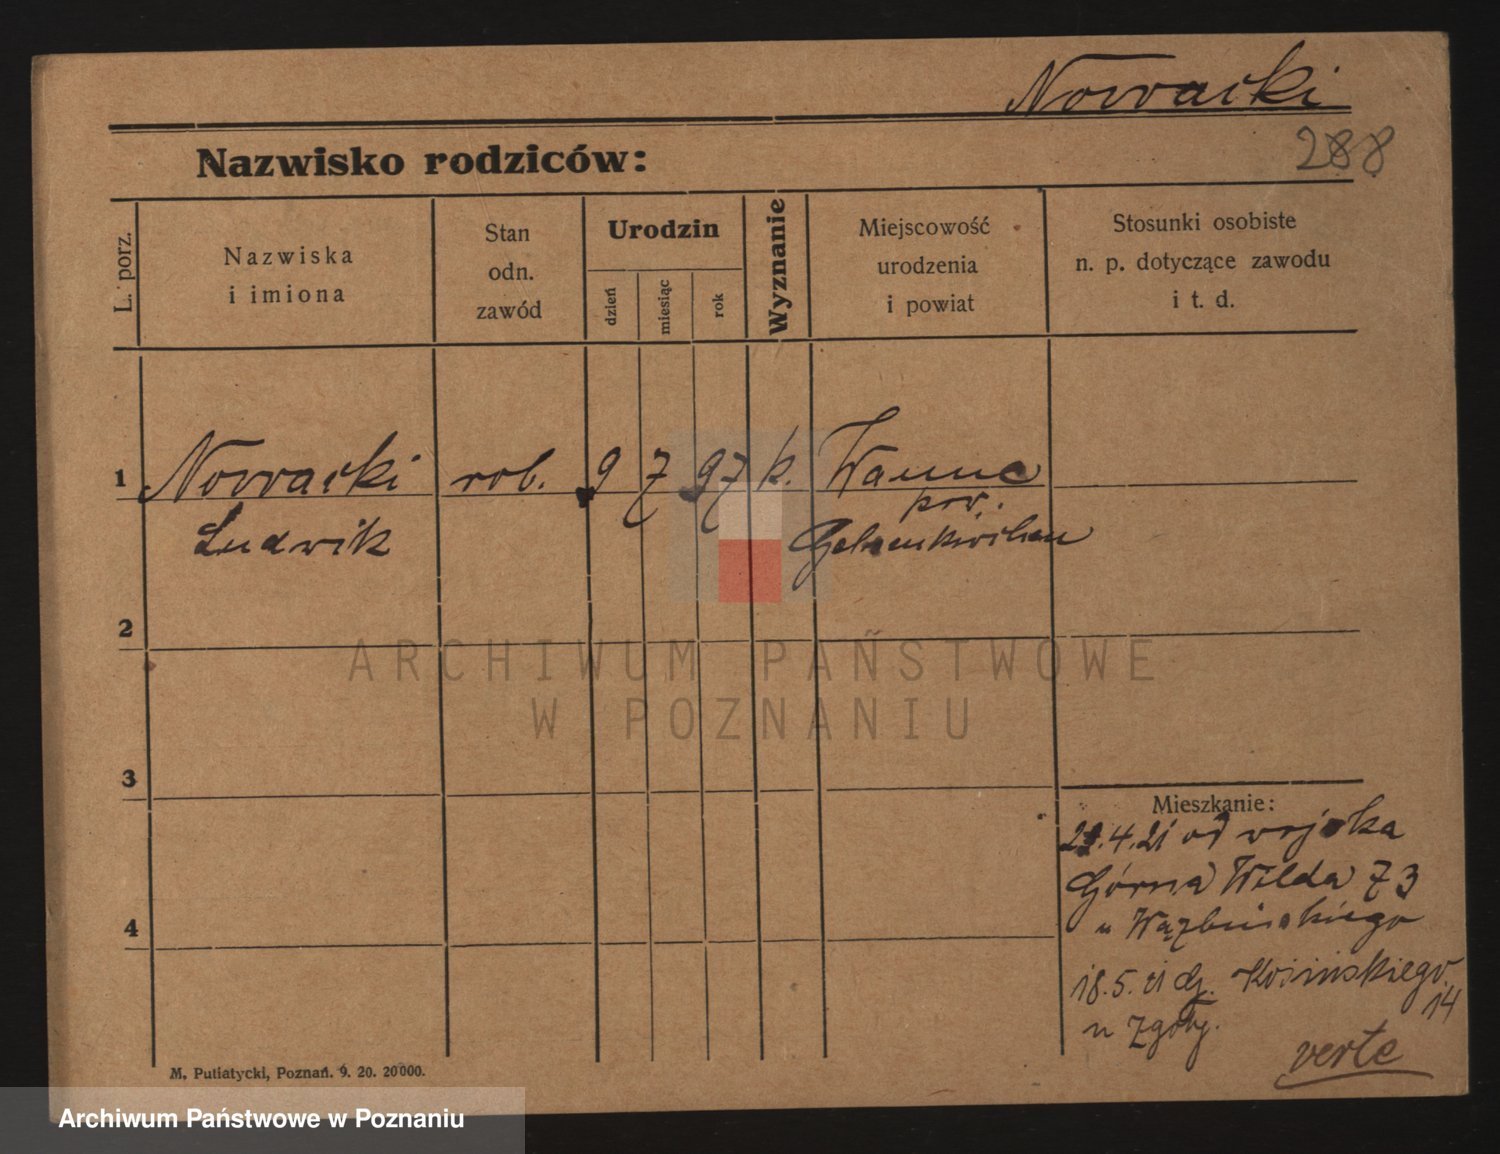 Nowacki
288
Nazwisko rodziców:
L. porz.
Nazwiska
i imiona
Stan
odn.
zawód
Urodzin
dzień
miesiąc
rok
Wyznanie
Miejscowość
urodzenia
i powiat
Stosunki osobiste
n. p. dotyczące zawodu
i t. d.
1 Nowacki rob. 9 7 97 k. Wanne
pow.
Ludwik
2
ARCHIWUM PAŃSTWOWE
W POZNANIU
3
Mieszkanie:
.4.21 od wojska
Górna Wilda 73
u
4
18.5.21
14
u
verte
M. Putiatycki, Poznań. 9. 20. 20000.
Archiwum Państwowe w Poznaniu